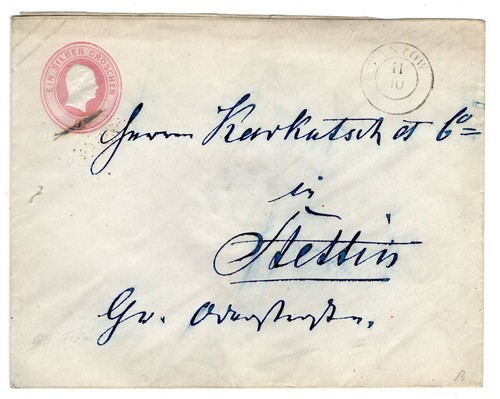 EIN SILBER GROSCHEN
11
10
Herrn Karkutsch et Co
in
Stettin
Gr. Oderstrasse.